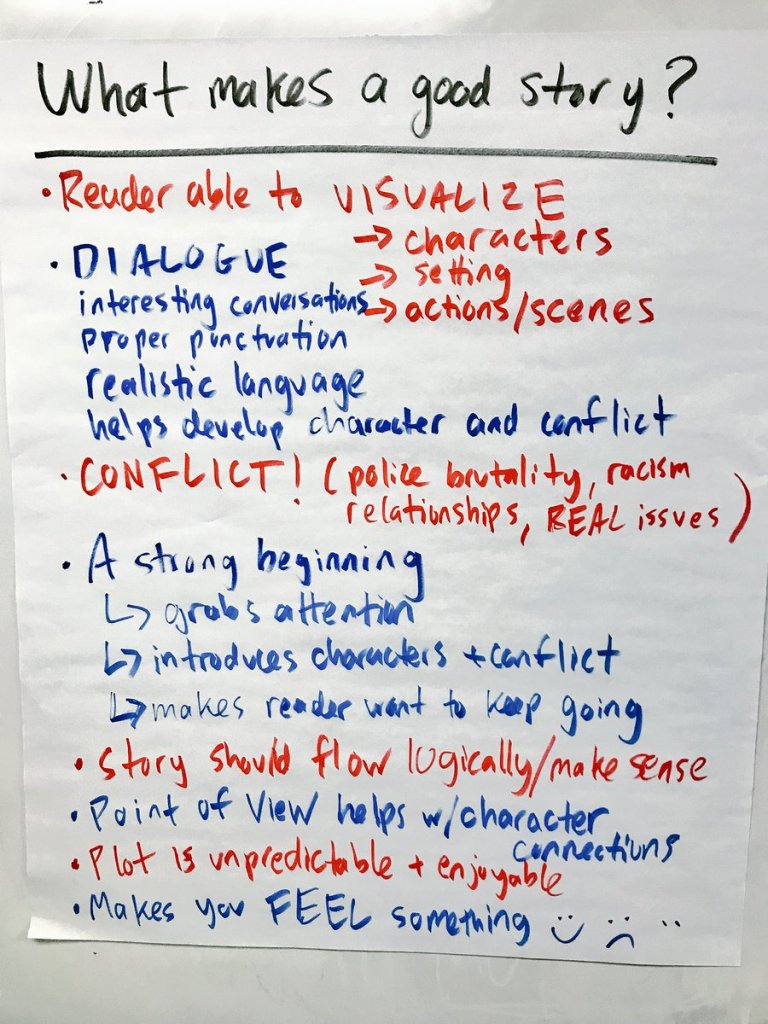 What makes a good story?
• Reader able to VISUALIZE
→ characters
→ setting
→ actions/scenes
• DIALOGUE
interesting conversations
proper punctuation
realistic language
helps develop character and conflict
• CONFLICT! (police brutality, racism
relationships, REAL issues)
• A strong beginning
↳ grabs attention
↳ introduces characters + conflict
↳ makes reader want to keep going
• Story should flow logically/make sense
• Point of View helps w/character
connections
• Plot is unpredictable + enjoyable
• Makes you FEEL something